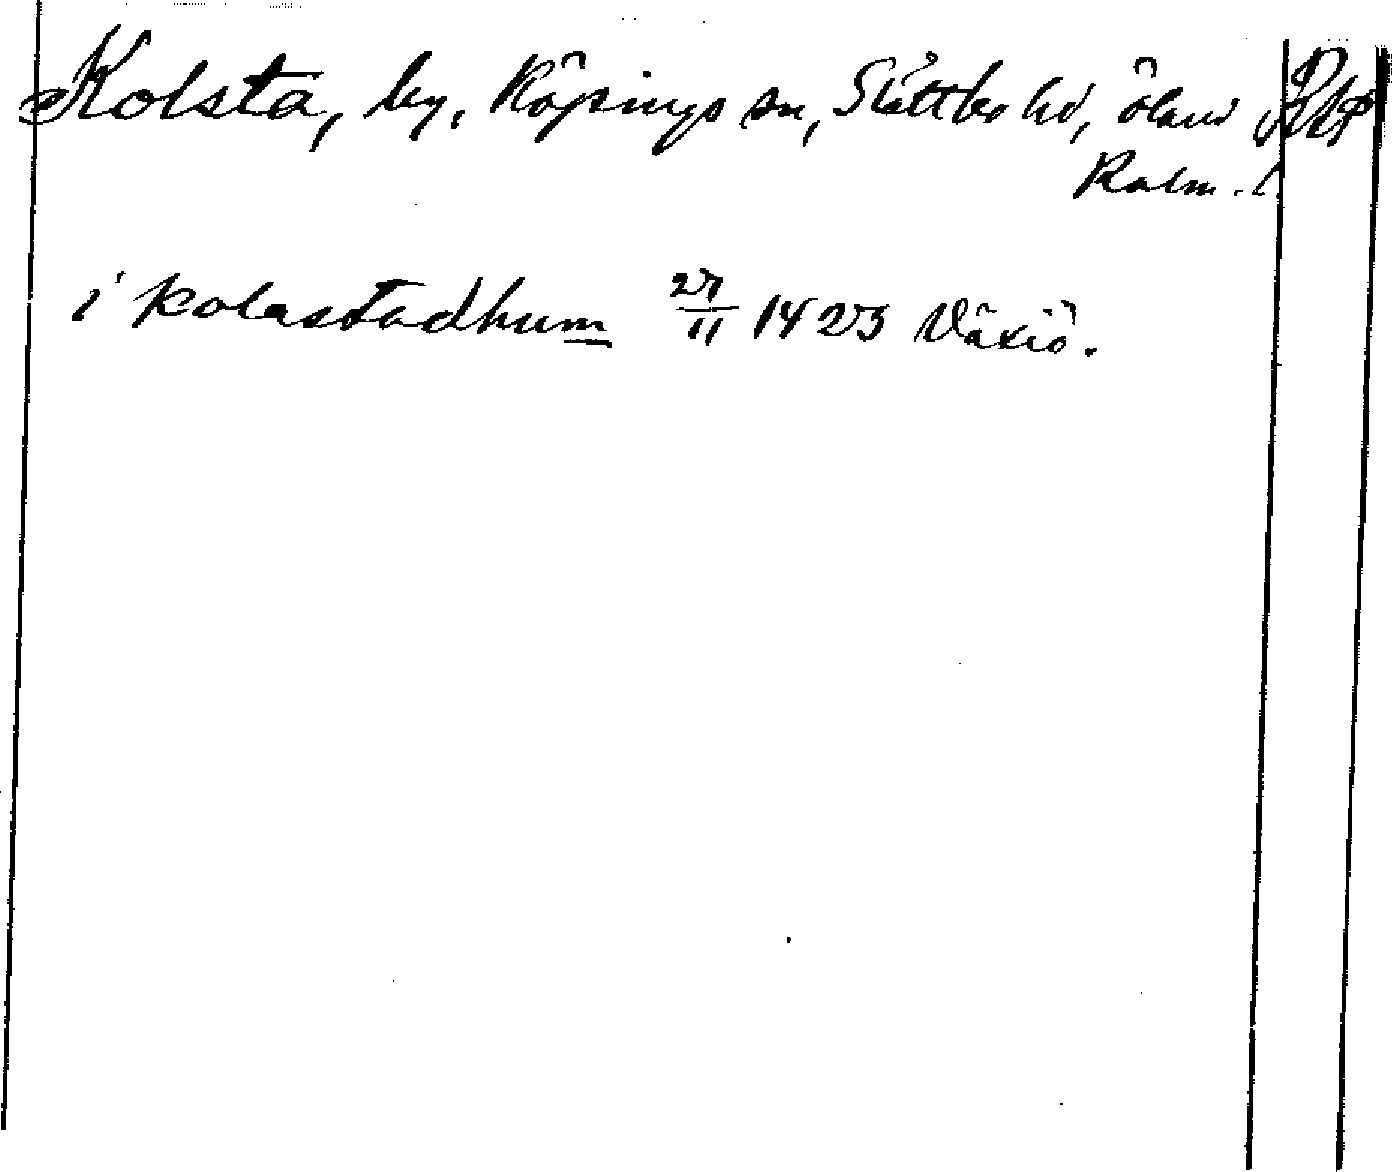 Kolsta, by, Köpings sn, Slättbo hd, Öland
Kalm. l.
i kolastadhum 27/11 1423 Växiö.